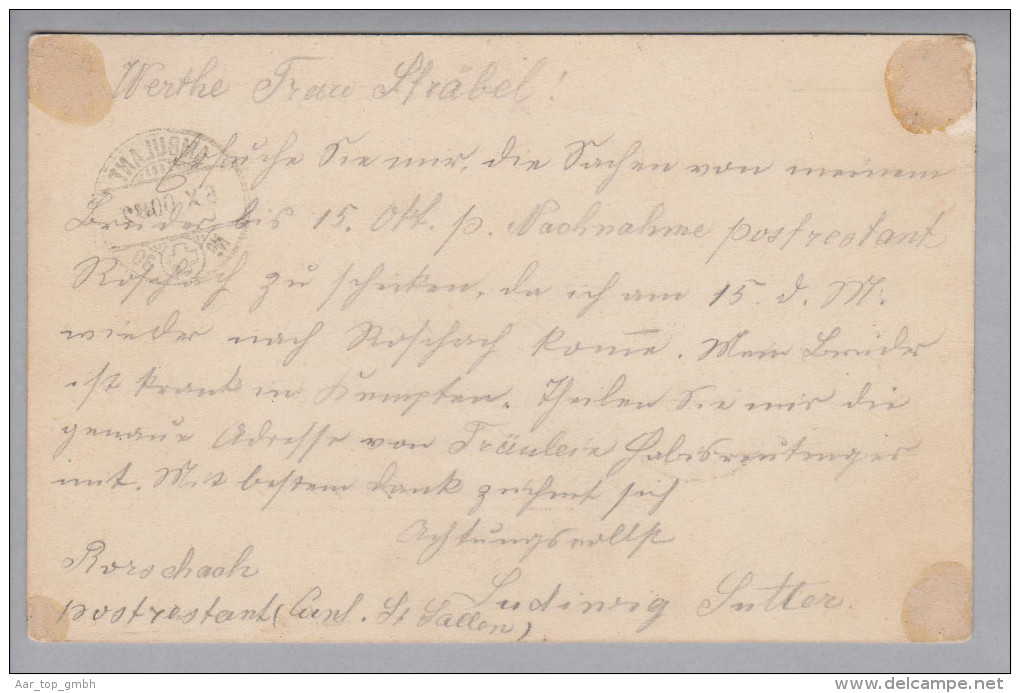 Werthe Frau Sträbel!
Ersuche Sie mir, die Sachen von meinem
Bruder bis 15. Okt. p. Nachnahme postrestant
Roschach zu schicken, da ich am 15. d. M.
wieder nach Roschach kom̅e. Mein Bruder
ist krank in Kempten. Theilen Sie mir die
genaue Adresse von Fräulein Habisreutinger
mit. Mit bestem Dank zeichnet sich
Achtungsvollst
Rorschach
Ludiwig Sutter.
postrestant (Cant. St Gallen)
AMBULANT
Aar_top_gmbh
delcampe.net